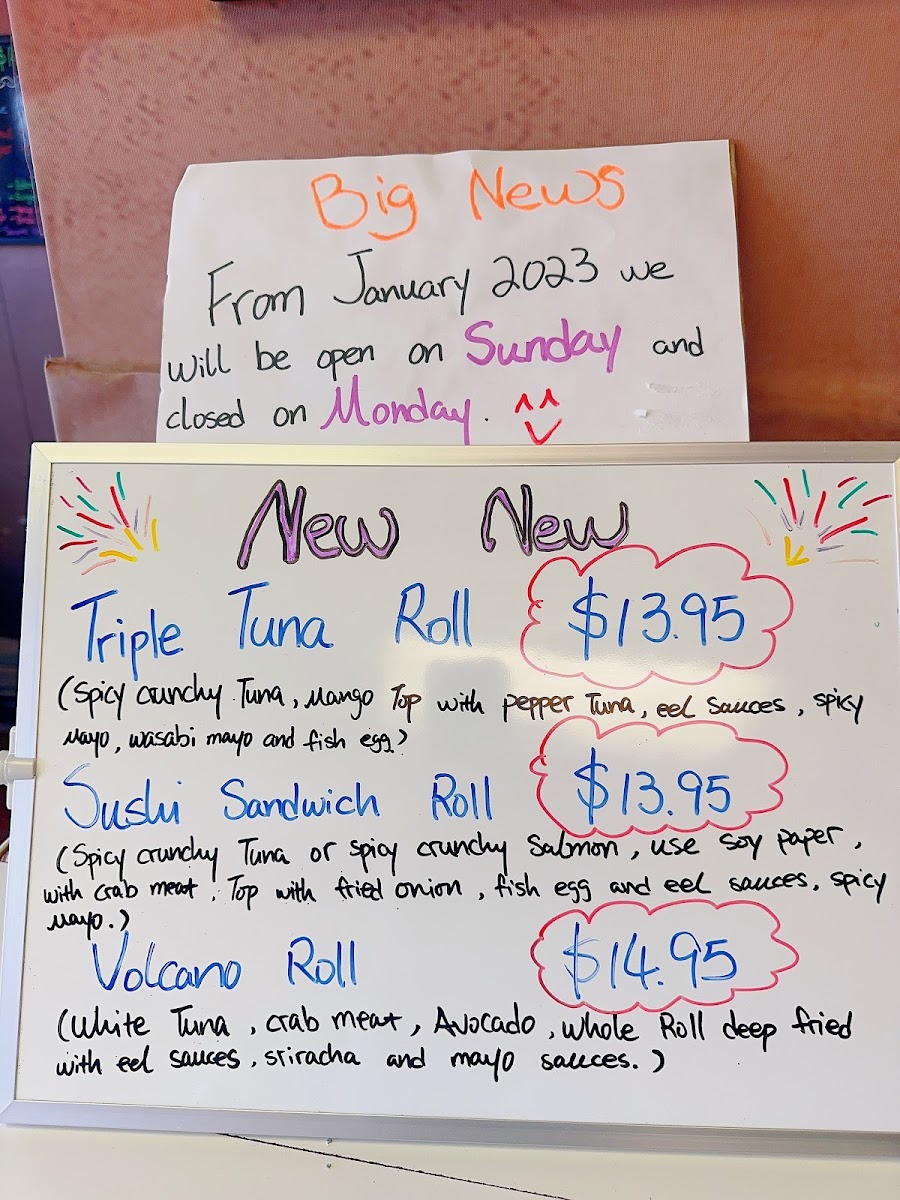 Big News
From January 2023 we
will be open on Sunday and
closed on Monday.
New New
Triple Tuna Roll $13.95
(Spicy crunchy Tuna, Mango Top with pepper Tuna, eel Sauces, spicy
Mayo, wasabi mayo and fish egg)
Sushi Sandwich Roll $13.95
(Spicy crunchy Tuna or spicy crunchy Salmon, use soy paper,
with crab meat, Top with fried onion, fish egg and eel sauces, spicy
Mayo.)
Volcano Roll $14.95
(White Tuna, crab meat, Avocado, whole Roll deep fried
with eel sauces, sriracha and mayo sauces.)